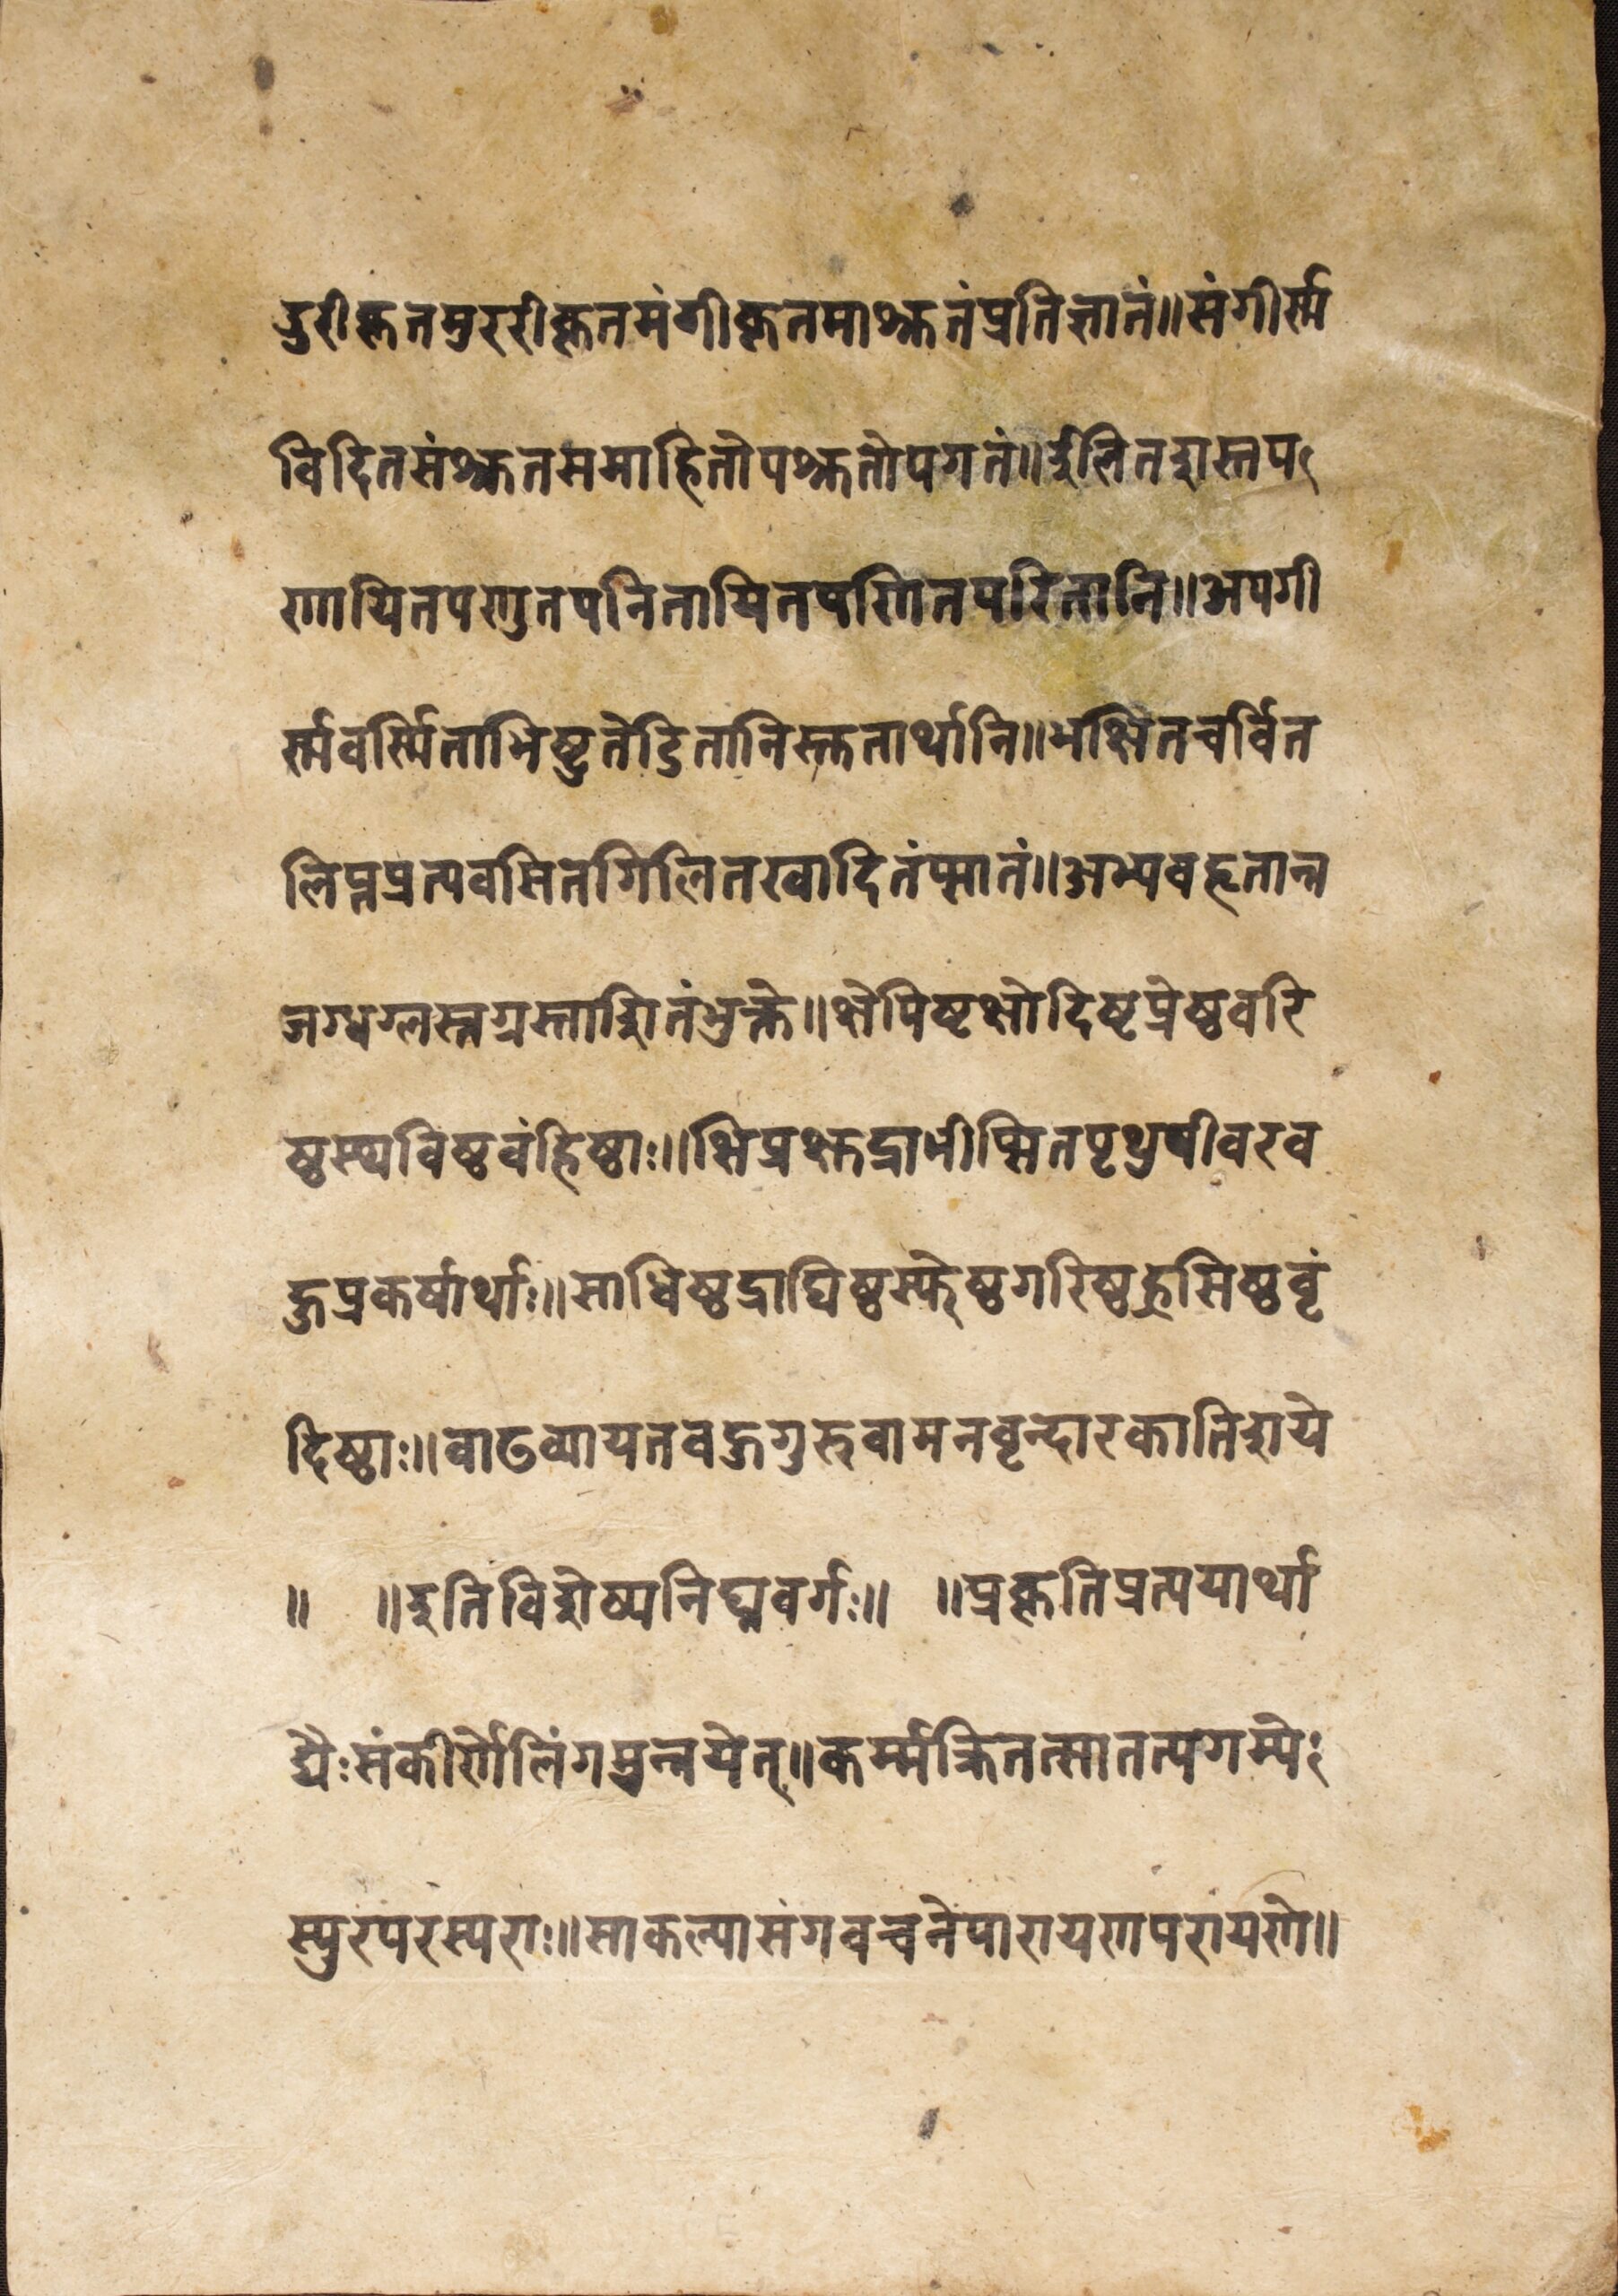 दुरीकृतमुररीकृतमंगीकृतमाश्रुतंप्रतिज्ञातं॥संगीर्ण
विदितसंश्रुतसमाहितोपश्रुतोपगतं॥ईलितशस्तप
णायितपणुतपनितायितपणितपरितानि॥अपगी
र्णवर्णिताभिष्टुतेडितानिस्तुतार्थानि॥भक्षितचर्वित
लिप्तप्रत्यवसितगिलितखादितंप्सातं॥अभ्यवहृतान्न
जग्धग्लस्तग्रस्ताशितंभुक्ते॥क्षेपिष्टक्षोदिष्टप्रेष्ठवरि
ष्ठस्थविष्ठवंहिष्ठाः॥क्षिप्रक्षुद्राभीप्सितपृथुपीवरव
हुप्रकर्षार्थाः॥साधिष्ठद्राघिष्ठस्फेष्ठगरिष्ठह्रसिष्ठवृं
दिष्ठाः॥वाढव्यायतवहुगुरुवामनवृन्दारकातिशये
॥ ॥इतिविशेष्यनिघ्नवर्गः॥ ॥प्रकृतिप्रत्ययार्था
द्यैःसंकीर्णेलिंगमुन्नयेत्॥कर्म्मक्रितत्सातत्यगम्येः
स्युरपरस्पराः॥साकल्यासंगवचनेपारायणपरायणे॥